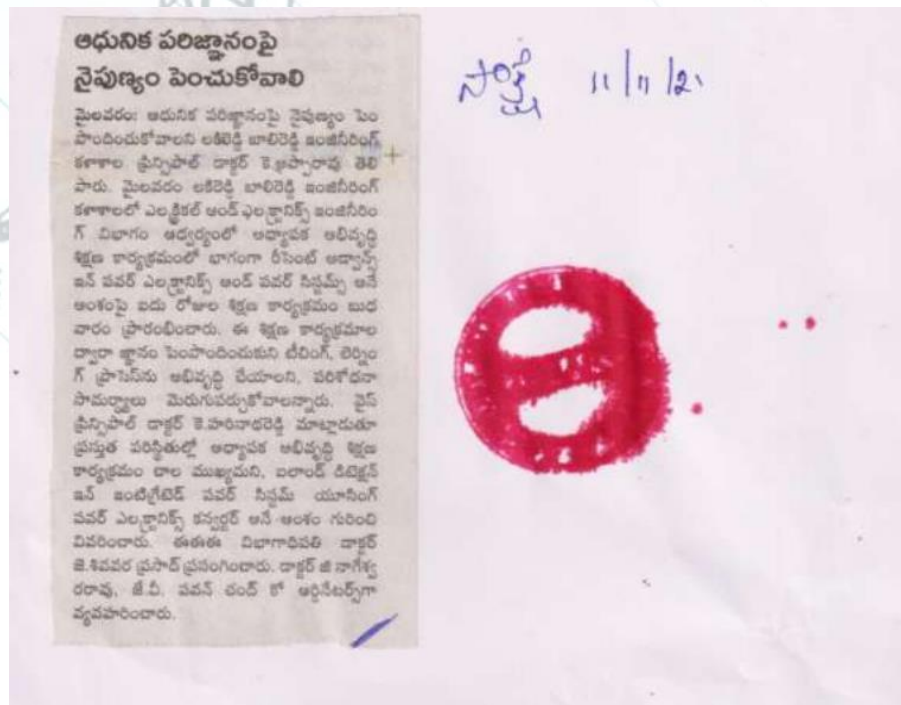 ఆధునిక పరిజ్ఞానంపై
నైపుణ్యం పెంచుకోవాలి
సాక్షి 11/11/21
మైలవరం: ఆధునిక పరిజ్ఞానంపై నైపుణ్యం పెం
పొందించుకోవాలని లకిరెడ్డి బాలిరెడ్డి ఇంజినీరింగ్
కళాశాల ప్రిన్సిపాల్ డాక్టర్ కె.అప్పారావు తెలి
పారు. మైలవరం లకిరెడ్డి బాలిరెడ్డి ఇంజినీరింగ్
కళాశాలలో ఎలక్ట్రికల్ అండ్ ఎలక్ట్రానిక్స్ ఇంజినీరిం
గ్ విభాగం ఆధ్వర్యంలో అధ్యాపక అభివృద్ధి
శిక్షణ కార్యక్రమంలో భాగంగా రీసెంట్ అడ్వాన్స్
ఇన్ పవర్ ఎలక్ట్రానిక్స్ అండ్ పవర్ సిస్టమ్స్ అనే
అంశంపై ఐదు రోజుల శిక్షణ కార్యక్రమం బుధ
వారం ప్రారంభించారు. ఈ శిక్షణ కార్యక్రమాల
ద్వారా జ్ఞానం పెంపొందించుకుని టీచింగ్, లెర్నిం
గ్ ప్రాసెస్‌ను అభివృద్ధి చేయాలని, పరిశోధనా
సామర్థ్యాలు మెరుగుపర్చుకోవాలన్నారు. వైస్
ప్రిన్సిపాల్ డాక్టర్ కె.హరినాథరెడ్డి మాట్లాడుతూ
ప్రస్తుత పరిస్థితుల్లో అధ్యాపక అభివృద్ధి శిక్షణ
కార్యక్రమం చాల ముఖ్యమని, ఐలాండ్ డిటెక్షన్
ఇన్ ఇంటిగ్రేటెడ్ పవర్ సిస్టమ్ యూసింగ్
పవర్ ఎలక్ట్రానిక్స్ కన్వర్టర్ అనే అంశం గురించి
వివరించారు. ఈఈఈ విభాగాధిపతి డాక్టర్
జె.శివవర ప్రసాద్ ప్రసంగించారు. డాక్టర్ జి నాగేశ్వ
రరావు, జే.వీ. పవన్ చంద్ కో ఆర్డినేటర్స్‌గా
వ్యవహరించారు.